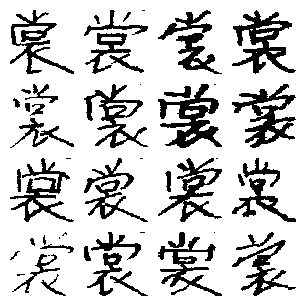 裳裳裳裳
裳裳裳裳
裳裳裳裳
裳裳裳裳